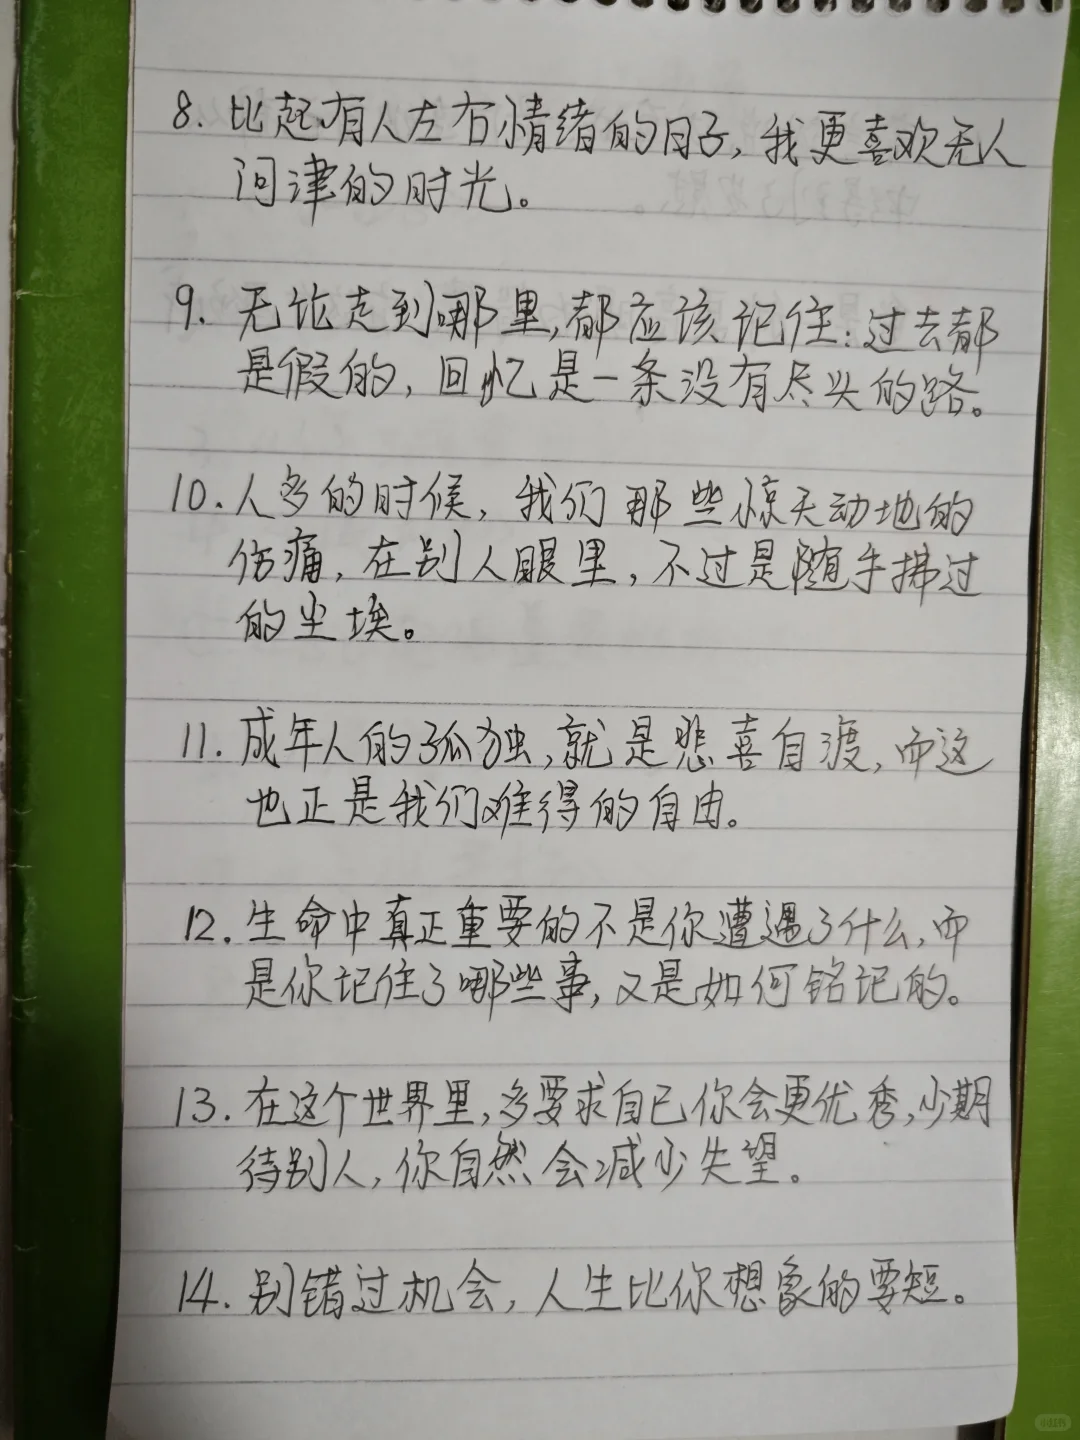 8. 比起有人左右情绪的日子,我更喜欢无人
问津的时光。
9. 无论走到哪里,都应该记住:过去都
是假的,回忆是一条没有尽头的路。
10. 人多的时候,我们那些惊天动地的
伤痛,在别人眼里,不过是随手拂过
的尘埃。
11. 成年人的孤独,就是悲喜自渡,而这
也正是我们难得的自由。
12. 生命中真正重要的不是你遭遇了什么,而
是你记住了哪些事,又是如何铭记的。
13. 在这个世界里,多要求自己你会更优秀,少期
待别人,你自然会减少失望。
14. 别错过机会,人生比你想象的要短。
小红书